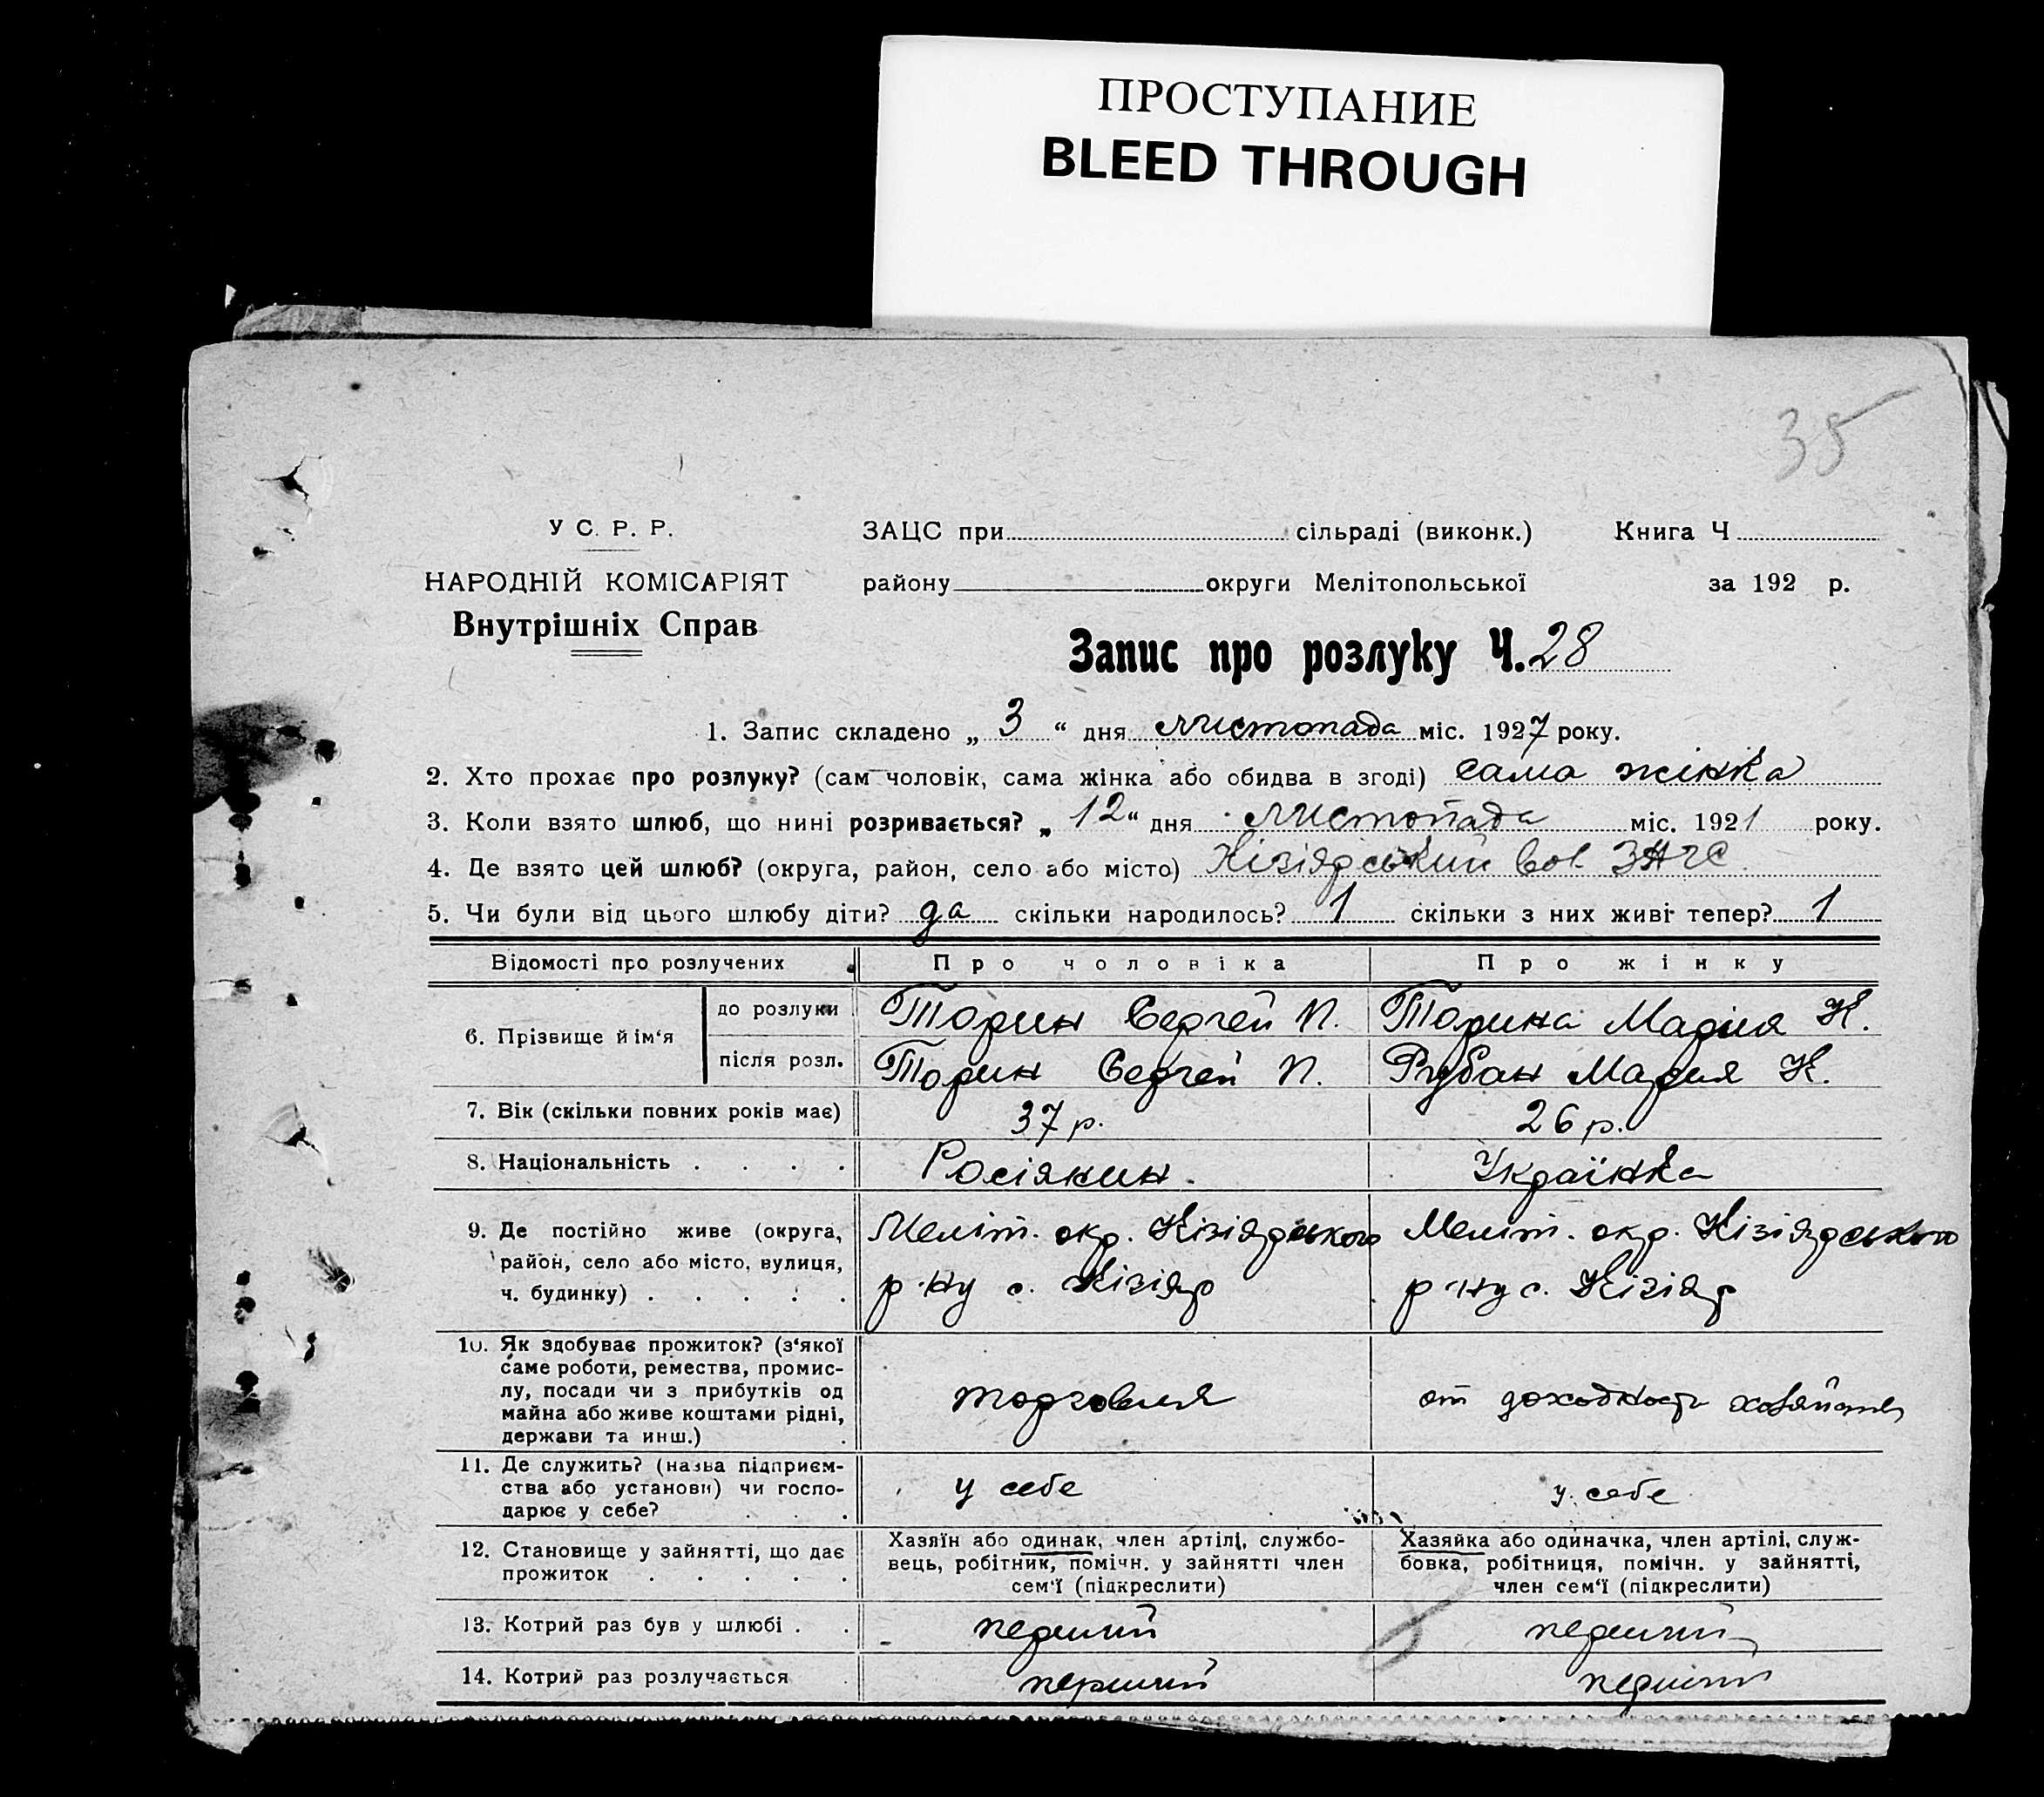 ПРОСТУПАНИЕ
BLEED THROUGH
35
У С. Р. Р.
НАРОДНІЙ КОМІСАРІЯТ
Внутрішніх Справ
ЗАЦС при сільраді (виконк.) Книга Ч
району округи Мелітопольської за 192 р.
Запис про розлуку Ч. 28
1. Запис складено „ 3 “ дня листопада міс. 1927 року.
2. Хто прохає про розлуку? (сам чоловік, сама жінка або обидва в згоді) сама жінка
3. Коли взято шлюб, що нині розривається? „ 12 “ дня листопада міс. 1921 року.
4. Де взято цей шлюб? (округа, район, село або місто) Кізіярський вол ЗАГС
5. Чи були від цього шлюбу діти? да скільки народилось? 1 скільки з них живі тепер? 1
Відомості про розлучених
Про чоловіка
Про жінку
6. Прізвище й ім‘я
до розлуки
Торин Сергей П.
Торина Марія К.
після розл.
Торин Сергей П.
Рубан Мария К.
7. Вік (скільки повних років має)
37 р.
26 р.
8. Національність . . . .
Росіянин.
Українка
9. Де постійно живе (округа,
район, село або місто, вулиця,
ч. будинку) . . . . .
Меліт. окр. Кізіярського
р-ну с. Кізіяр
Меліт. окр. Кізіярського
р-ну с. Кізіяр
10. Як здобуває прожиток? (з‘якої
саме роботи, ремества, промис-
лу, посади чи з прибутків од
майна або живе коштами рідні,
держави та инш.) .
торговля
от доходности хозяйства
11. Де служить? (назва підприєм-
ства або установи) чи госпо-
дарює у себе? . . .
у себе
у себе
12. Становище у зайнятті, що дає
прожиток . . . . .
Хазяїн або одинак, член артілі, службо-
вець, робітник, помічн. у зайнятті член
сем‘ї (підкреслити)
Хазяйка або одиначка, член артілі, служ-
бовка, робітниця, помічн. у зайнятті,
член сем‘ї (підкреслити)
13. Котрий раз був у шлюбі . .
перший
перший
14. Котрий раз розлучається .
перший
перший